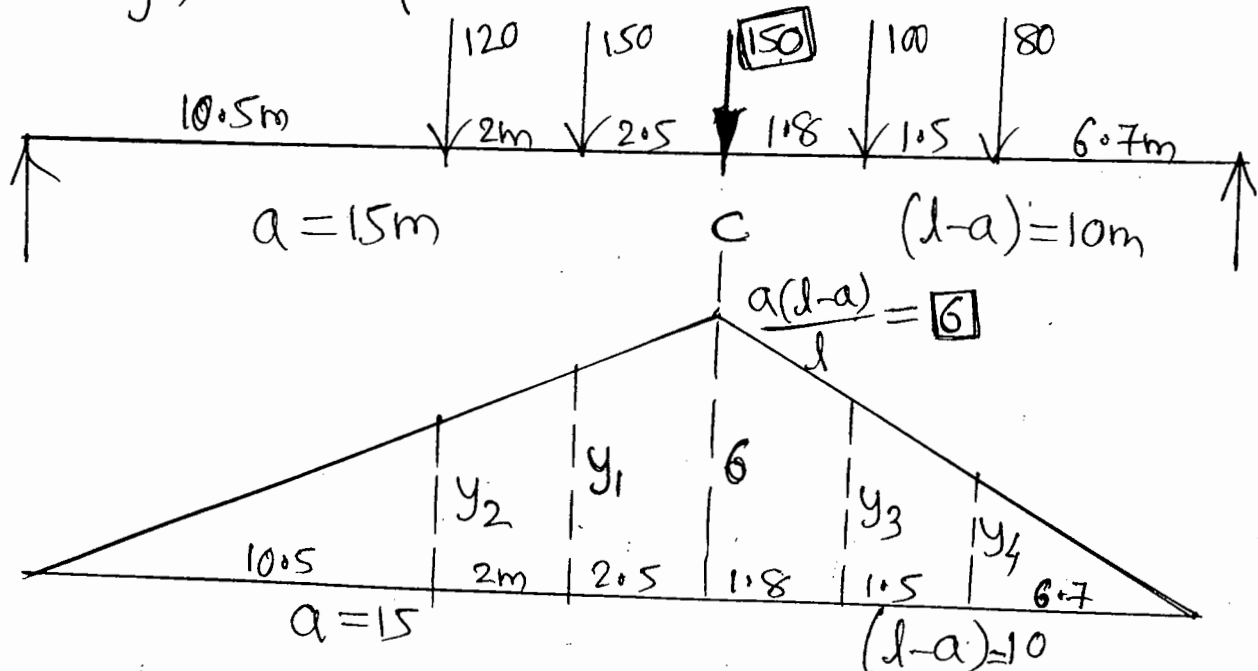 120 150 150 100 80
10.5m 2m 2.5 1.8 1.5 6.7m
a = 15m C (l-a) = 10m
a(l-a)/l = 6
y2 y1 6 y3 y4
10.5 2m 2.5 1.8 1.5 6.7
a = 15 (l-a)=10